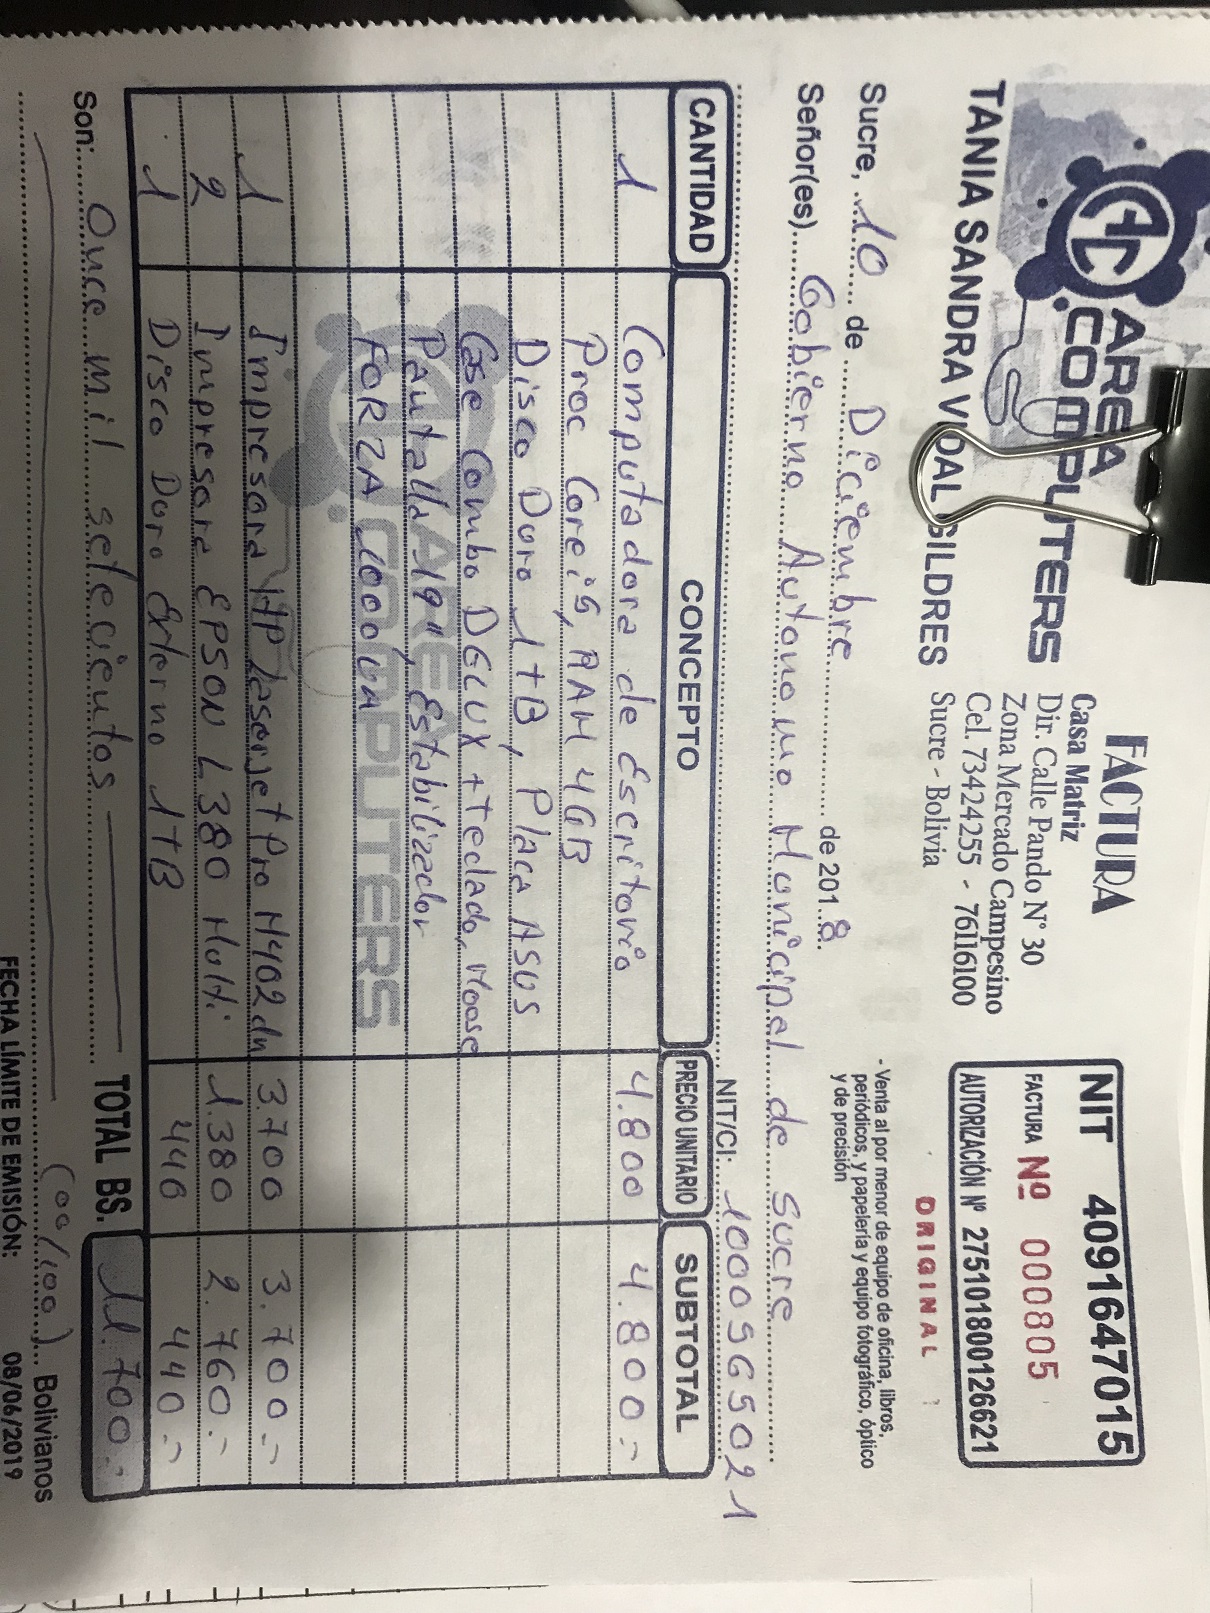 AREA
.COMPUTERS
TANIA SANDRA VIDAL GILDRES
FACTURA
Casa Matriz
Dir. Calle Pando N° 30
Zona Mercado Campesino
Cel. 73424255 - 76116100
Sucre - Bolivia
NIT 4091647015
FACTURA Nº 000805
AUTORIZACIÓN Nº 275101800126621
ORIGINAL
- Venta al por menor de equipo de oficina, libros,
periódicos, y papelería y equipo fotográfico, óptico
y de precisión
Sucre, 10 de Diciembre de 2018.
Señor(es) Gobierno Autonomo Municipal de Sucre
NIT/CI: 1000565021
CANTIDAD CONCEPTO PRECIO UNITARIO SUBTOTAL
1 Computadora de Escritorio 4.800 4.800.-
Proc Core i5, RAM 4GB
Disco Duro 1TB, Placa ASUS
Case Combo DELUX + Teclado, Mouse
Pantalla 19", Estabilizador
FORZA
1 Impresora HP Laserjet Pro M402dn 3.700 3.700.-
2 Impresora EPSON L380 Multi 1.380 2.760.-
1 Disco Duro Externo 1TB 440 440.-
AREA
COMPUTERS
TOTAL BS. 11.700.-
Son: Once mil setecientos
(00/100) Bolivianos
FECHA LÍMITE DE EMISIÓN: 08/06/2019